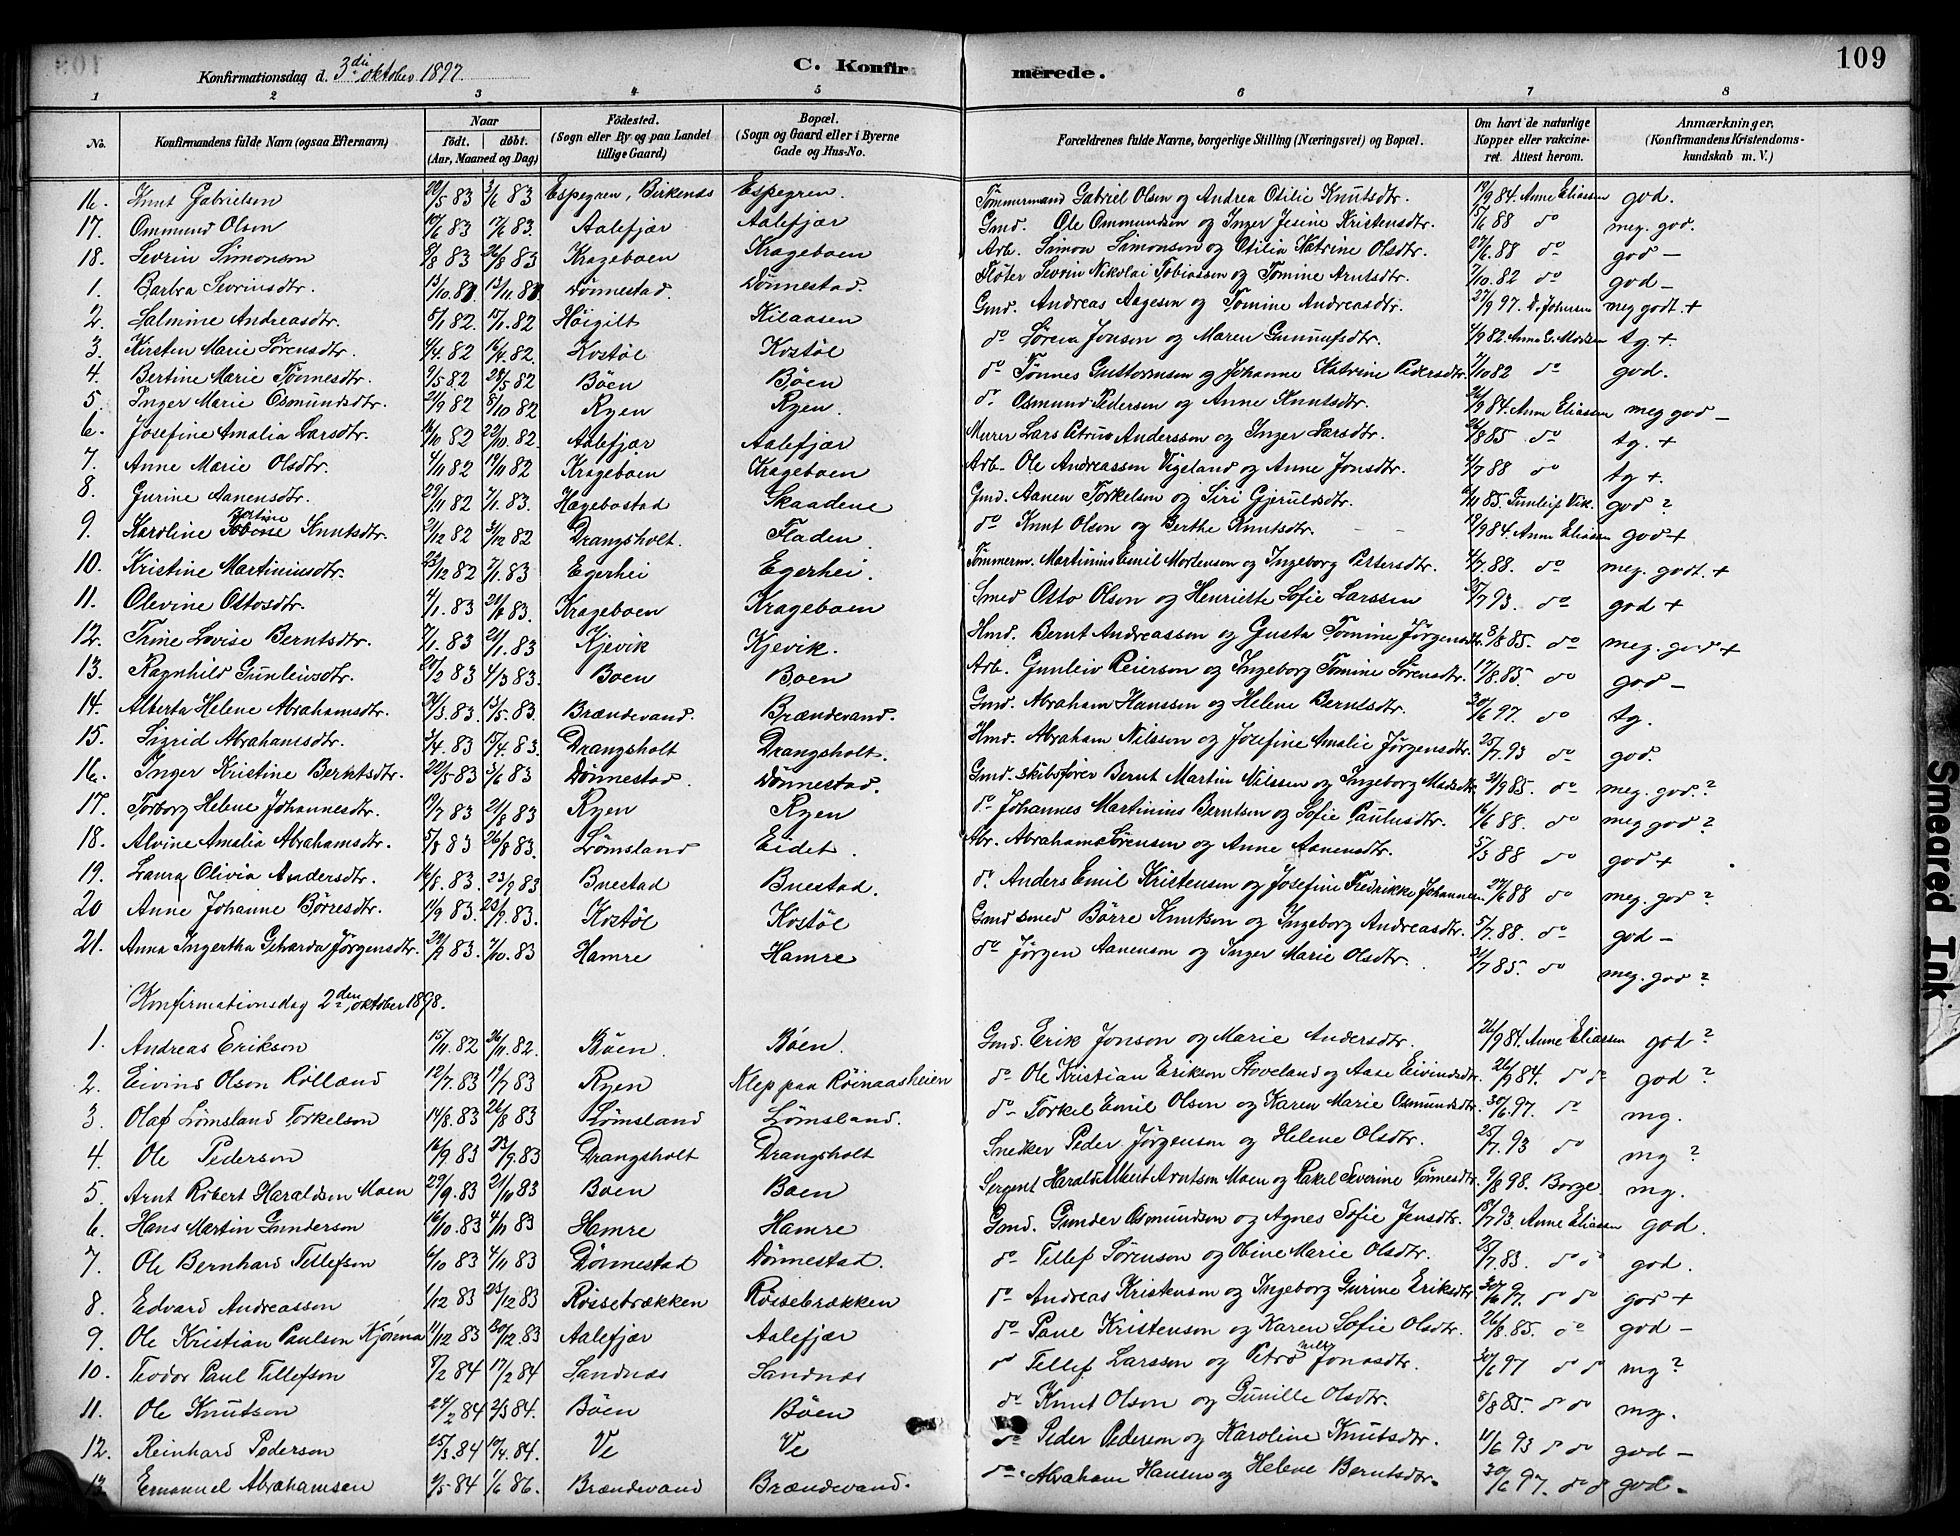 109
Konfirmationsdag d. 3die oktober 1897.
C. Konfirmerede.
1 2 3 4 5 6 7 8
No. Konfirmandens fulde Navn (ogsaa Efternavn) Naar født. døbt. (Aar, Maaned og Dag) Fødested. (Sogn eller By og paa Landet tillige Gaard) Bopæl. (Sogn og Gaard eller i Byerne Gade og Hus-No. Forældrenes fulde Navne, borgerlige Stilling (Næringsvei) og Bopæl. Om havt de naturlige Kopper eller vakcineret. Attest herom. Anmærkninger, (Konfirmandens Kristendomskundskab m. V.)
16. Knut Gabrielsen 22/5 83 3/6 83 Espegren, Birkenes Espegren. Tømmermand Gabriel Olsen og Andrea Otilie Knutsdtr. 19/9 84. Anne Eliassen god.
17. Ommund Olson 10/6 83 17/6 83. Aalefjær Aalefjær Gmd. Ole Ommundsen og Inger Jesine Kristensdtr. 15/6 88 do meg. god.
18. Severin Simonson 8/8 83 26/8 83 Krageboen Krageboen Arb. Simon Simonson og Otilia Katrine Olsdtr. 27/6. 88 do god -
1. Barbra Sevrinsdtr. Dønnestad. Dønnestad. Fløter Sevrin Nikolai Tobiassen og Tomine Arntsdtr. 7/10. 82 do god -
2. Salmine Andreasdtr. Høigilt Kilaasen Gmd. Andreas Aagesen og Tomine Andreasdtr. 27/9 97. D. Johnsen meg godt. +
3. Kirsten Marie Sørensdtr. 4/4. 82 16/4. 82. Kostøl Kostøl do Søren Jonson og Maren Gunnufsdtr. 4/9 82. Anna G. Madsen tg. +.
4. Bertine Marie Tønnesdtr. 9/5 82 28/5 82 Bøen Bøen. do Tønnes Guttormsen og Johanne Katrine Pedersdtr. 7/10 82 do god.
5. Inger Marie Osmundsdtr. 21/9 82 8/10 82 Ryen Ryen. do Osmund Pederson og Anne Knutsdtr. 26/9 84. Anne Eliassen meg god -
6. Josefine Amalia Larsdtr. 16/10 82 22/10 82. Aalefjær Aalefjær Murer Lars Petrus Andersson og Inger Larsdtr. 26/8 85 do tg. +
7. Anne Marie Olsdtr. 4/11 82 19/11 82 Krageboen Krageboen Arb. Ole Andreassen Vigeland og Anne Jonsdtr. 4/7 88 do tg +.
8. Gurine Aanensdtr. 29/11 82 7/1. 83. Hægebostad Skaadene Gmd. Aanen Torkelsen og Siri Gjeruldsdtr. 6/11 85. Gunleif Vik. god?
9. Karoline Knutsdtr. 21/12 82 31/12 82 Drangsholt. Fladen. do Knut Olson og Berthe Knutsdtr. - - 19/9 84. Anne Eliassen god +
10. Kristine Martiniusdtr. 23/12 82 7/1. 83 Egerhei Egerhei. Tømmerm. Martinius Emil Mortenson og Ingeborg Petersdtr. 4/7. 88. do meg. godt. +
11. Olevine Ottosdtr. 4/1. 83 Krageboen Krageboen Smed Otto Olson og Henriette Sofie Larssen 25/7 93. do god +
12. Trine Lovise Berntsdtr. 7/1. 83 21/1. 83 Kjevik Kjevik. Hmd. Bernt Andreassen og Gusta Tomine Jørgensdtr. 3/8 85. do meg. god +
13. Ragnhild Gunleivsdtr. 4/3 83. Boen Boen Arb. Gunleiv Reierson og Ingeborg Tomine Sørensdtr. 17/8. 85. do god -
14. Alberta Helene Abrahamsdtr. 24/3. 83. 13/5. 83. Brændevand. Brændevand. Gmd. Abraham Hanssen og Helene Berntsdtr. 30/6 97. do tg.
15. Sigrid Abrahamsdtr. 3/4. 83 15/4. 83. Drangsholt Drangsholt. Hmd. Abraham Nilsson og Josefine Amalie Jørgensdtr. 25/7. 93 do god.
16. Inger Kristine Berntsdtr. 22/5 83 3/6 83 Dønnestad. Dønnestad. Gmd. skibsfører Bernt Martin Nilssen og Ingeborg Madsdtr. 21/9 85. do meg. god.?
17. Torborg Helene Johannesdtr. 19/7 83 21/8 83 Ryen Ryen. do Johannes Martinius Berntsen og Sofie Paulusdtr. 16/6 88. do meg god?
18. Alvine Amalia Abrahamsdtr. 5/8 83 26/8 83. Lømsland Eidet. Abr. Abraham Sørensen og Anne Aanensdtr. 5/3 88 do god +
19. Laura Olivia Andersdtr. 16/8. 83. 23/9 83 Buestad Buestad. do Anders Emil Kristensen og Josefine Fredrikke Johannesen 27/6 88 do meg. god?
20 Anne Johanne Børresdtr. 11/9 83. 23/9. 83. Kostøl Kostøl Gmd smed Børre Knutson og Ingeborg Andreasdtr. 5/7. 88. do god -
21. Anna Ingertha Geharda Jørgensdtr. 7/10. 83 Hamre Hamre do Jørgen Aanenson og Inger Marie Olsdtr. 31/7 85. do meg. god?
Konfirmationsdag 2den oktober 1898.
1. Andreas Erikson 15/11. 82 26/11. 82. Bøen. Bøen. Gmd. Erik Jonson og Marie Andersdtr. 26/9 84. Anne Eliassen god?
2. Eivind Olson Rolland 12/7. 83 Ryen Klep paa Røinaasheien do Ole Kristian Erikson Stoveland og Aase Eivindsdtr. 26/9 84. do do god?
3. Olaf Lømsland Torkelson 14/8. 83 26/8 83 Lømsland Lømsland. do Torkel Emil Olson og Karen Marie Osmundsdtr. 30/6. 97. do mg.
4. Ole Pederson 16/9 83 23/9. 83 Drangsholt Drangsholt Snedker Peder Jørgenson og Helene Olsdtr. 25/7. 93 do mg?
5. Arnt Robert Haraldsen Moen 29/9. 83 21/10 83 Boen Boen Sergent Harald Albert Arntson Moen og Severine Tønnesdtr. 9/8 98. Borge. mg.
6. Hans Martin Gunderson 16/10. 83 4/11 83 Hamre Hamre Gmd. Gunder Osmundson og Agnes Sofie Jensdtr. Anne Eliassen god.
7. Ole Bernhard Tellefson 6/10 83 4/11 83 Dønnestad Dønnestad. do Tellef Sørenson og Obine Marie Olsdtr. 25/7. 83. do do god.
8. Edvard Andreasson 1/12 83 25/12 83 Røssebrækken Røssebrækken do Andreas Kristenson og Ingeborg Gurine Eriksdtr 30/6 97. do do god +
9. Ole Kristian Paulson Kjønna 11/12 83 30/12. 83 Aalefjær Aalefjær do Paul Kristenson og Karen Sofie Olsdtr. 26/8. 85. do god -
10. Teodor Paul Tellefson 5/2 84 17/2 84 Sandnes Sandnes do Tellef Larsson og Petronille Jonasdtr. 30/6 97 do do mg?
11. Ole Knutson 24/2 84 2/3 84. Bøen Bøen do Knut Olson og Gunille Olsdtr. 8/8 85. do do mg.
12. Reinhard Pederson 25/3. 84 Ve Ve do Peder Pederson og Karoline Knutsdtr. 11/6 93 do do god -
13. Emanuel Abrahamsen 1/6 86. Brændevand Brændevand. do Abraham Hansen og Helene Berntsdtr. 30/6 97. do do god -
Smeared Ink